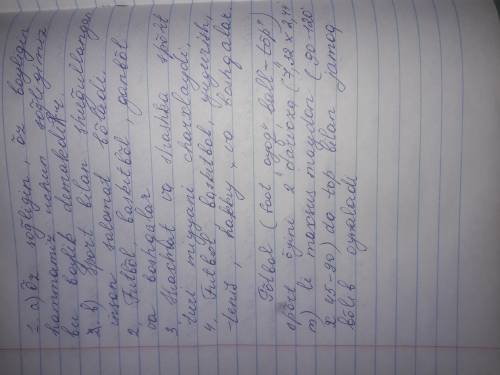 1. a) Öz soğligin, öz boyligin
hammamiz uchun soğligimiz
bu boylik demakdir.
2. b) Sport bilan shuğullangan
inson salomat bŏladi.
2 Futbol, basketbol, gandbol
va boshqalar
3 Shachmat va shashka sport
turi miyyani charxlaydi,
4. Futbol, basketbol, yugurish,
tenis, hokky, va boshqalar.
Fŏtbol (foot "oyog", ball-top")
sport ŏyini 2 darvoxa (7,32 x 2,44
m) li maxsus maydon (90-120
x 45-90) da top bilan jamoa
bŏlib oynaladi